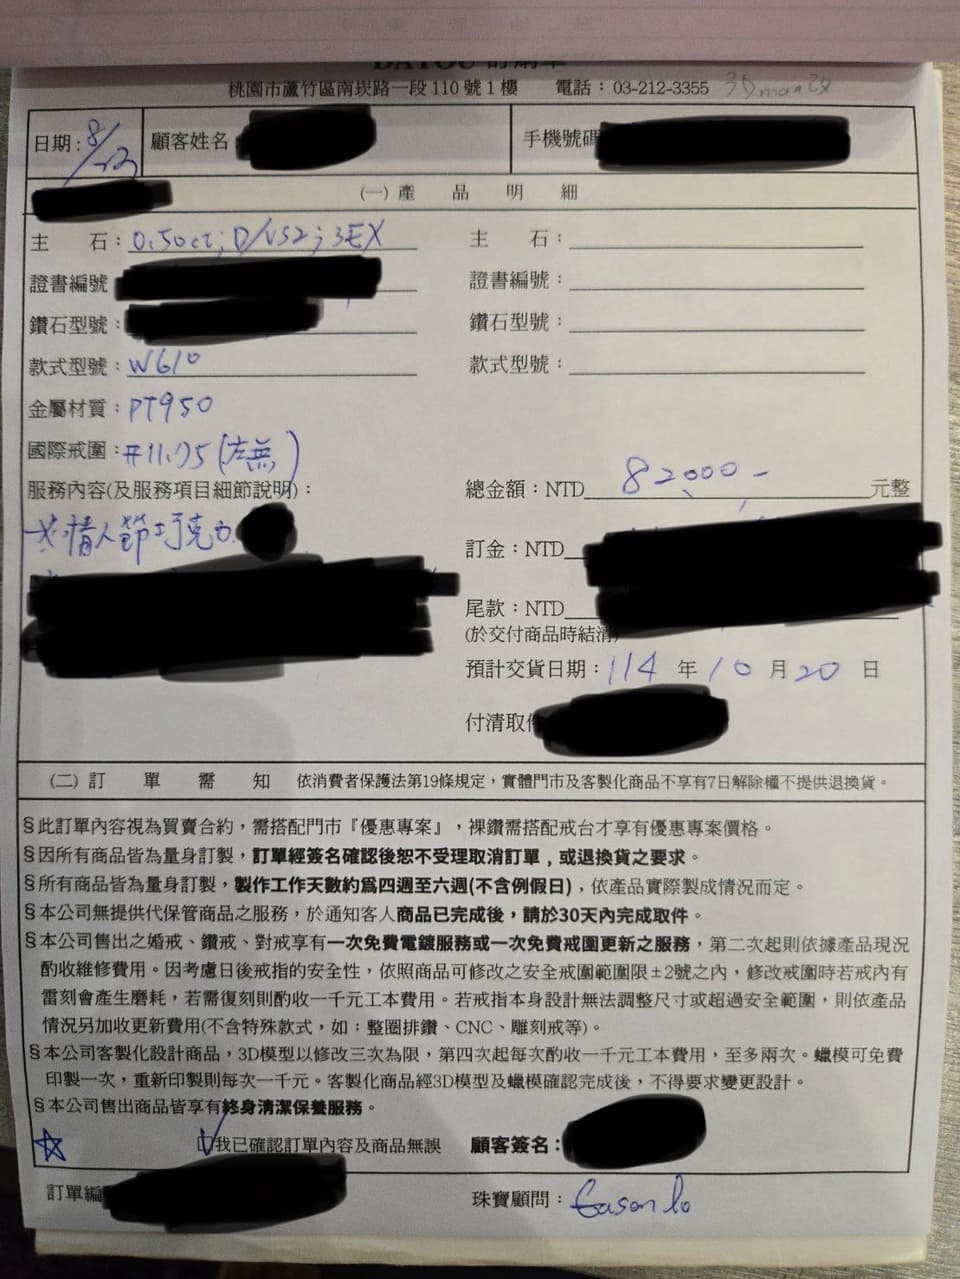 DAYOU 訂購單
桃園市蘆竹區南崁路一段110號1樓 電話：03-212-3355
日期: 8/23 顧客姓名 手機號碼
(一) 產品明細
主石：0.50ct; D/VS2; 3EX 主石：
證書編號 證書編號：
鑽石型號： 鑽石型號：
款式型號：W610 款式型號：
金屬材質：PT950
國際戒圍：#11.75 (左無)
服務內容(及服務項目細節說明)： 總金額：NTD 82000- 元整
情人節巧克力
訂金：NTD
尾款：NTD
(於交付商品時結清)
預計交貨日期：114 年 10 月 20 日
付清取件
(二) 訂單需知 依消費者保護法第19條規定，實體門市及客製化商品不享有7日解除權不提供退換貨。
§此訂單內容視為買賣合約，需搭配門市『優惠專案』，裸鑽需搭配戒台才享有優惠專案價格。
§因所有商品皆為量身訂製，訂單經簽名確認後恕不受理取消訂單，或退換貨之要求。
§所有商品皆為量身訂製，製作工作天數約為四週至六週(不含例假日)，依產品實際製成情況而定。
§本公司無提供代保管商品之服務，於通知客人商品已完成後，請於30天內完成取件。
§本公司售出之婚戒、鑽戒、對戒享有一次免費電鍍服務或一次免費戒圍更新之服務，第二次起則依據產品現況
酌收維修費用。因考慮日後戒指的安全性，依照商品可修改之安全戒圍範圍限±2號之內，修改戒圍時若戒內有
雷刻會產生磨耗，若需復刻則酌收一千元工本費用。若戒指本身設計無法調整尺寸或超過安全範圍，則依產品
情況另加收更新費用(不含特殊款式，如：整圈排鑽、CNC、雕刻戒等)。
§本公司客製化設計商品，3D模型以修改三次為限，第四次起每次酌收一千元工本費用，至多兩次。蠟模可免費
印製一次，重新印製則每次一千元。客製化商品經3D模型及蠟模確認完成後，不得要求變更設計。
§本公司售出商品皆享有終身清潔保養服務。
☑我已確認訂單內容及商品無誤 顧客簽名：
訂單編 珠寶顧問：Eason lo